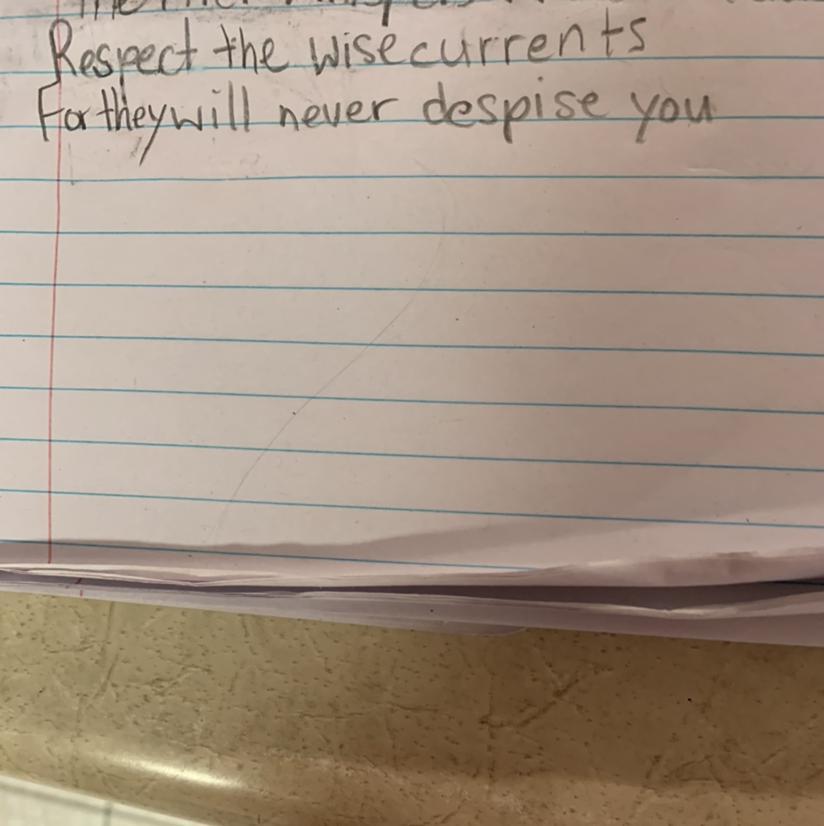 Respect the wise currents
For they will never despise you